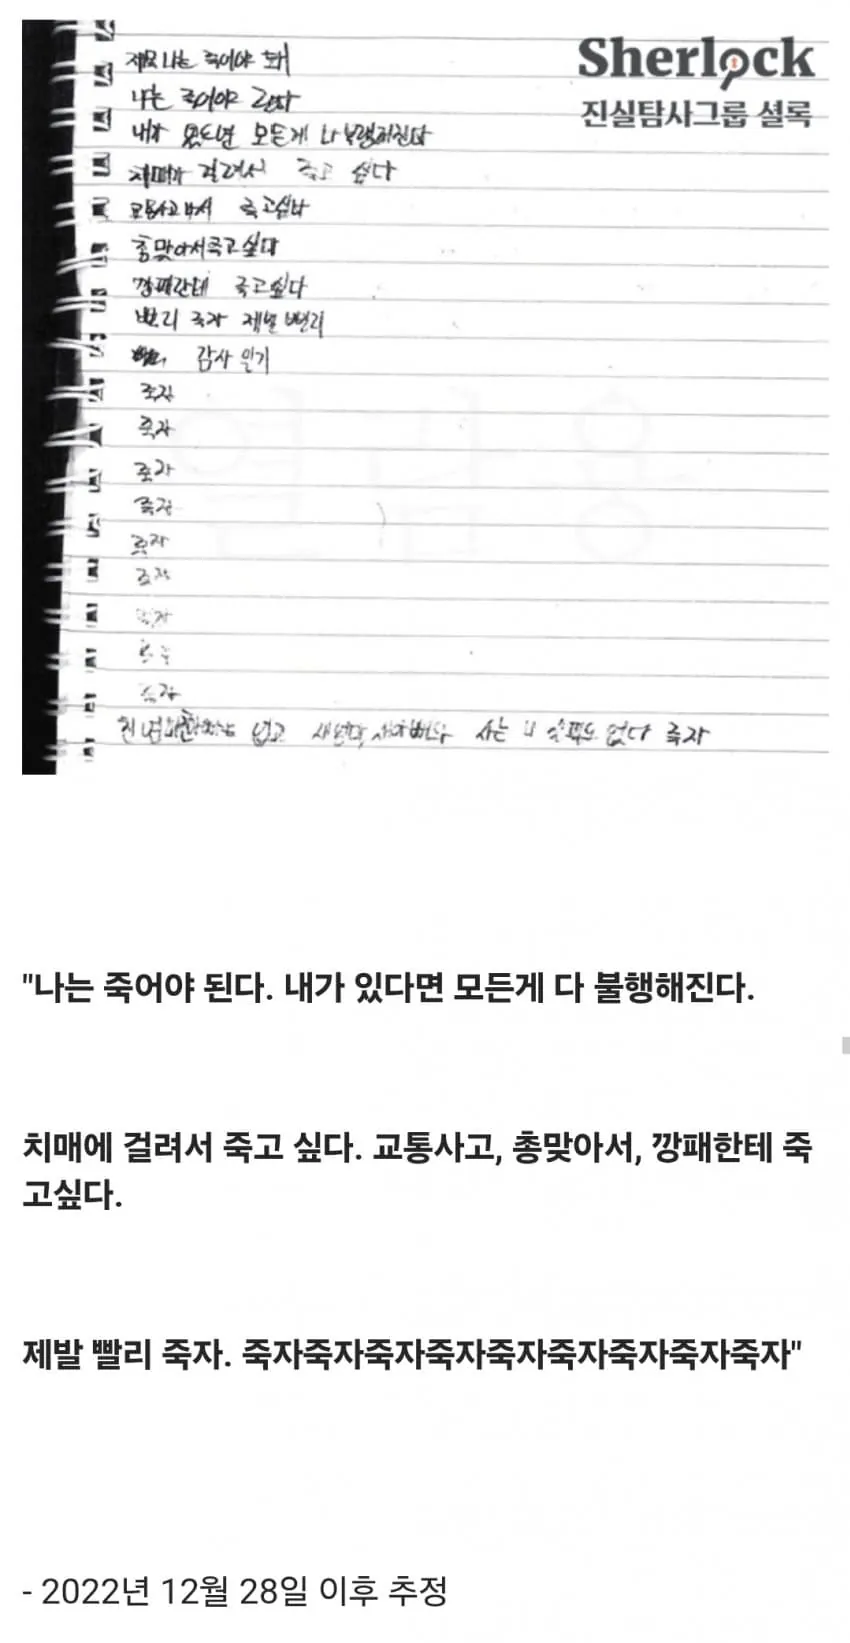 Sherlock
진실탐사그룹 셜록
나는 죽어야 돼
나는 죽어야 된다
내가 있다면 모든게 다 불행해진다
치매 걸려서 죽고 싶다
교통사고 나서 죽고싶다
총맞아서죽고싶다
깡패한테 죽고싶다
빨리 죽자 제발 빨리
감사 일기
죽자
죽자
죽자
죽자
죽자
죽자
죽자
죽자
없고 사는 없다 죽자
열람용
"나는 죽어야 된다. 내가 있다면 모든게 다 불행해진다.
치매에 걸려서 죽고 싶다. 교통사고, 총맞아서, 깡패한테 죽
고싶다.
제발 빨리 죽자. 죽자죽자죽자죽자죽자죽자죽자죽자죽자"
- 2022년 12월 28일 이후 추정